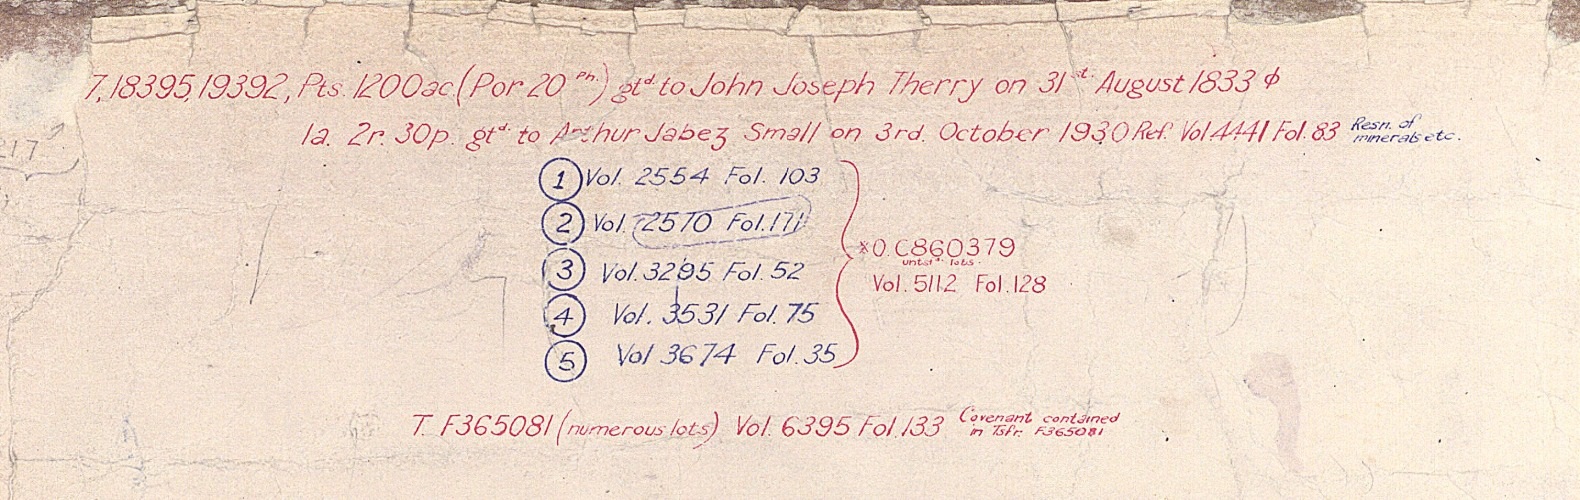 7, 18395, 19392, Pts. 1200ac (Por 20 Ph.) gtd. to John Joseph Therry on 31st. August 1833 &
1a. 2r. 30p. gtd. to Arthur Jabez Small on 3rd. October 1930 Ref. Vol. 4441 Fol. 83 Resn. of minerals etc.
217
1 Vol. 2554 Fol. 103
2 Vol. 2570 Fol. 171
3 Vol. 3295 Fol. 52
4 Vol. 3531 Fol. 75
5 Vol 3674 Fol. 35
*O. C860379
untsfd. lots.
Vol. 5112 Fol. 128
T. F365081 (numerous lots) Vol. 6395 Fol. 133 Covenant contained in Tsfr. F365081